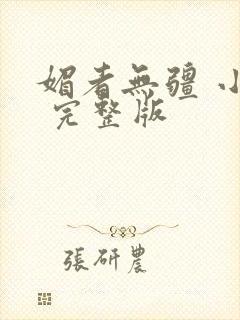 媚者無疆 小
完整版
張研農